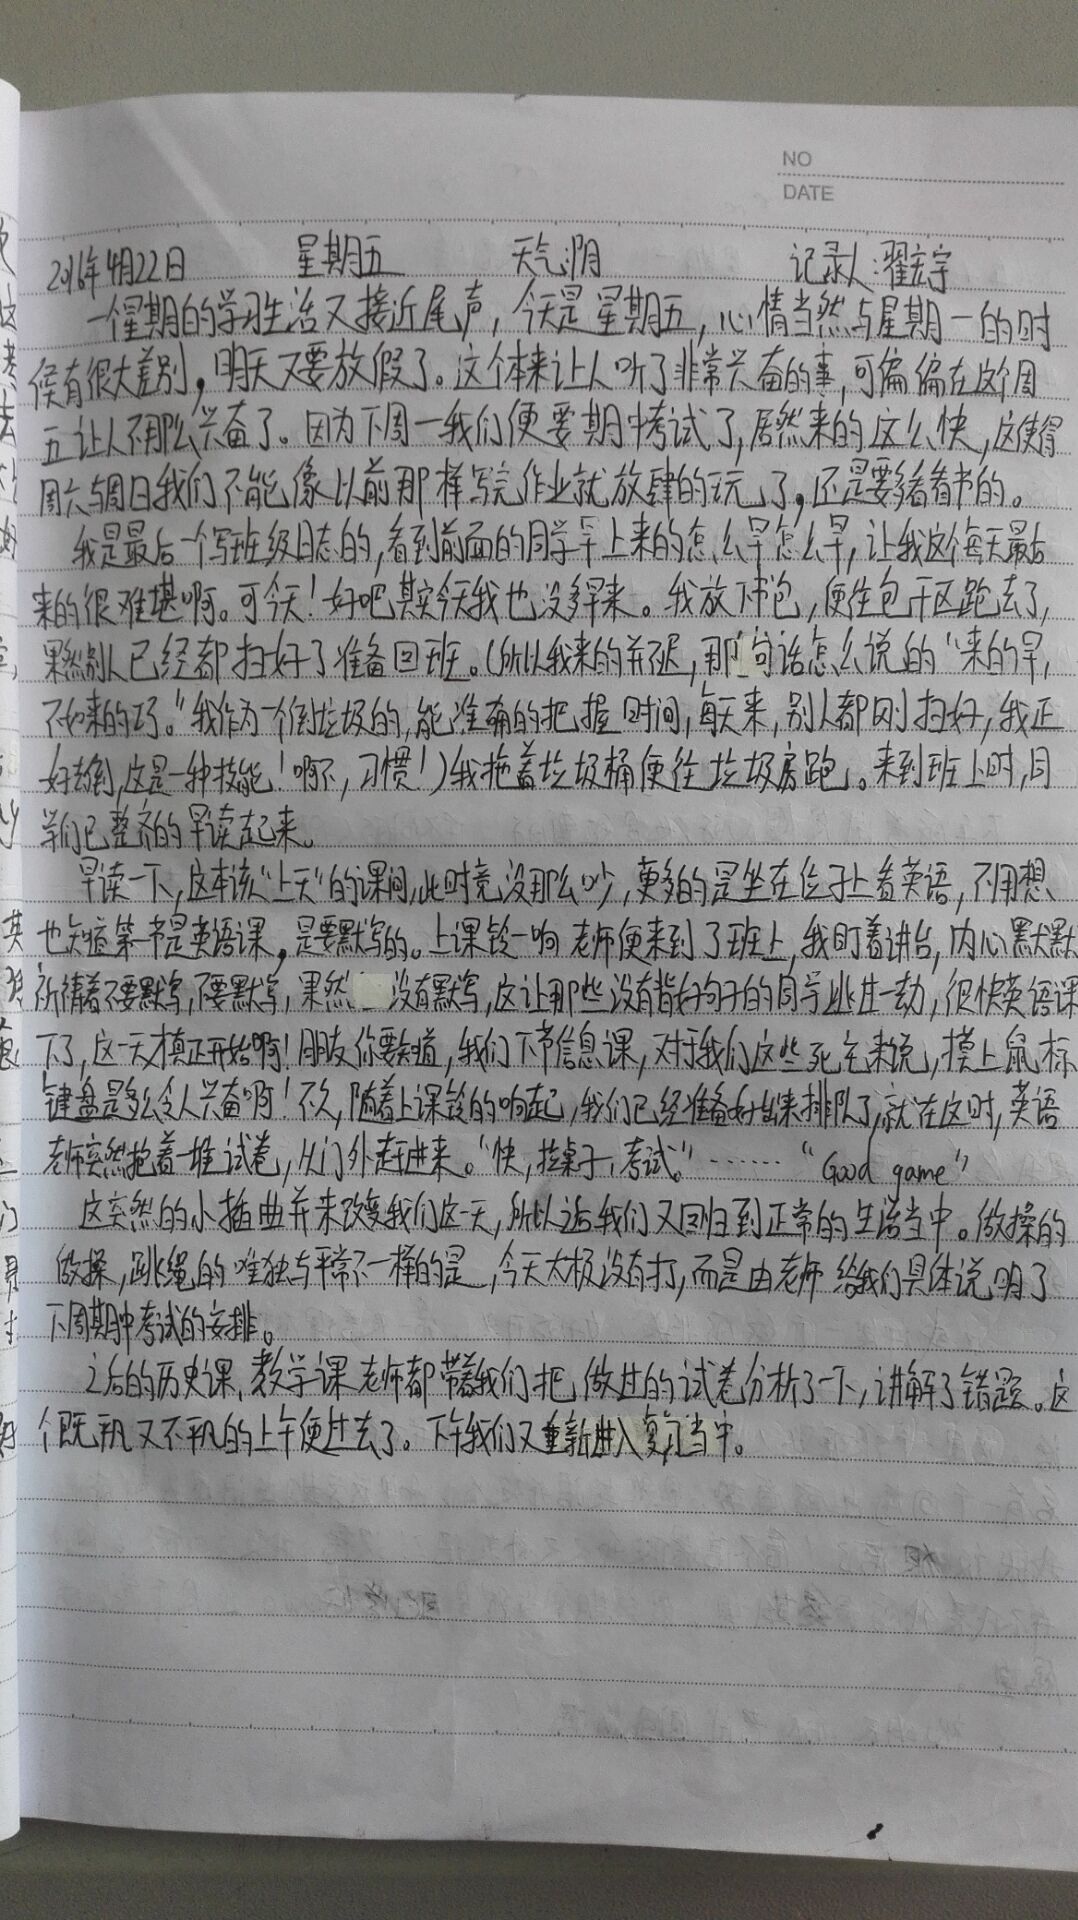 NO
DATE
2016年4月22日 星期五 天气:阴 记录人:翟宏宇
一个星期的学习生活又接近尾声，今天是星期五，心情当然与星期一的时
候有很大差别，明天又要放假了。这个本来让人听了非常兴奋的事，可偏偏在这个周
五让人不那么兴奋了。因为下周一我们便要期中考试了，居然来的这么快，这使得
周六与周日我们不能像以前那样写完作业就放肆的玩了，还是要多看看书的。
我是最后一个写班级日志的，看到前面的同学早上来的怎么早怎么早，让我这个每天最后
来的很难堪啊。可今天！好吧其实今天我也没多早来。我放下书包，便往包干区跑去了，
果然别人已经都扫好了准备回班。（所以我来的并不迟，那句话怎么说的“来的早，
不如来的巧。”我作为一个倒垃圾的，能准确的把握时间，每天来，别人都刚扫好，我正
好去倒，这是一种技能！啊不，习惯！）我拖着垃圾桶便往垃圾房跑。来到班上时，同
学们已整齐的早读起来。
早读一下，这本该“上天”的课间，此时竟没那么吵，更多的是坐在位子上看英语，不用想
也知道第一节是英语课，是要默写的。上课铃一响老师便来到了班上，我盯着讲台，内心默默
祈祷着不要默写，不要默写，果然 没有默写，这让那些没有背好句子的同学逃过一劫，很快英语课
下了，这一天才真正开始啊！朋友你要知道，我们下节信息课，对于我们这些死宅来说，摸上鼠标
键盘是多么令人兴奋啊！不久，随着上课铃的响起，我们已经准备好出来排队了，就在这时，英语
老师突然抱着一堆试卷，从门外走进来。“快，拉桌子，考试。”…… “Good game”
这突然的小插曲并未改变我们这一天，所以说我们又回归到正常的生活当中。做操的
做操，跳绳的 唯独与平常不一样的是，今天太极没有打，而是由老师给我们具体说明了
下周期中考试的安排。
之后的历史课，数学课老师都带着我们把做过的试卷分析了一下，讲解了错题。这
个既平凡又不平凡的上午便过去了。下午我们又重新进入复习当中。